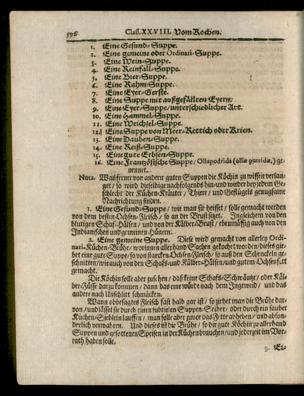 596 Class. XXVIII. Vom Kochen.
1. Eine Gesund-Suppe.
2. Eine gemeine oder Ordinari-Suppe.
3. Eine Wein-Suppe.
4. Eine Reinfall-Suppe.
5. Eine Bier-Suppe.
6. Eine Rahm-Suppe.
7. Eine Eyer-Gerste.
8. Eine Suppe mit außgefällten Eyern.
9. Eine Eyer-Suppe, unterschiedlicher Art.
10. Eine Hammel-Suppe.
11. Eine Weichsel-Suppe.
12. Eine Suppe von Meer-Rettich oder Krien.
13. Eine Dauben-Suppe.
14. Eine Reiß-Suppe.
15. Eine gute Erbsen-Suppe.
16. Eine Frantzösische Suppe/ Ollapodrida (olla putrida,) ge-
nennet.
Nota. Was ferner von andern guten Suppen die Köchin zu wissen verlan-
get/ so wird dieselbige nachfolgends bin und wieder bey dem Ge-
schlecht der Küchen-Kräuter/ Thiere/ und Geflügels genugsame
Nachrichtung finden.
1. Eine Gesund-Suppe/ wie man sie heisset/ solle gemacht werden
von dem besten Ochsen-Fleisch/ so an der Brust sitzet. Ingleichem von den
blutigen Schaf-Hälsen/ und von der Kälber-Brust/ ebenmässig auch von den
Indianischen und gemeinen Hünern.
2. Eine gemeine Suppe. Diese wird gemacht von allerley Ordi-
nari-Küchen-Brühe/ worinnen allerhand Sachen gekocht worden/ dieses gi-
bet eine gute Suppe/ so von starcken Ochsen-Fleisch/ so auß den Schrancken ge-
schnitten/ wie auch von den Schaf- und Kälber-Hälsen/ und gutem Ochsenfett
gemacht.
Die Köchin solle aber zusehen/ daß keine Schafs-Schwäntze/ oder Käl-
ber-Füsse darzu kommen/ dann das eine würde nach dem Ingeweid/ und das
andere nach Unschlit schmäcken.
Wann obbesagtes Fleisch fast bald gar ist/ so ziehet man die Brühe dar-
von/ und lässet sie durch einen subtilen Suppen-Seiher/ oder durch ein sauber
Küchen-Sieblein lauffen/ man solle aber zuvor das Fett abheben/ und abson-
derlich verwahren. Und dieses ist die Brühe/ so die gute Köchin zu allerhand
Suppen und gesottenen Speisen in der Küchen brauchen/ und jederzeit im Vor-
rath haben solle.
3. Ei-